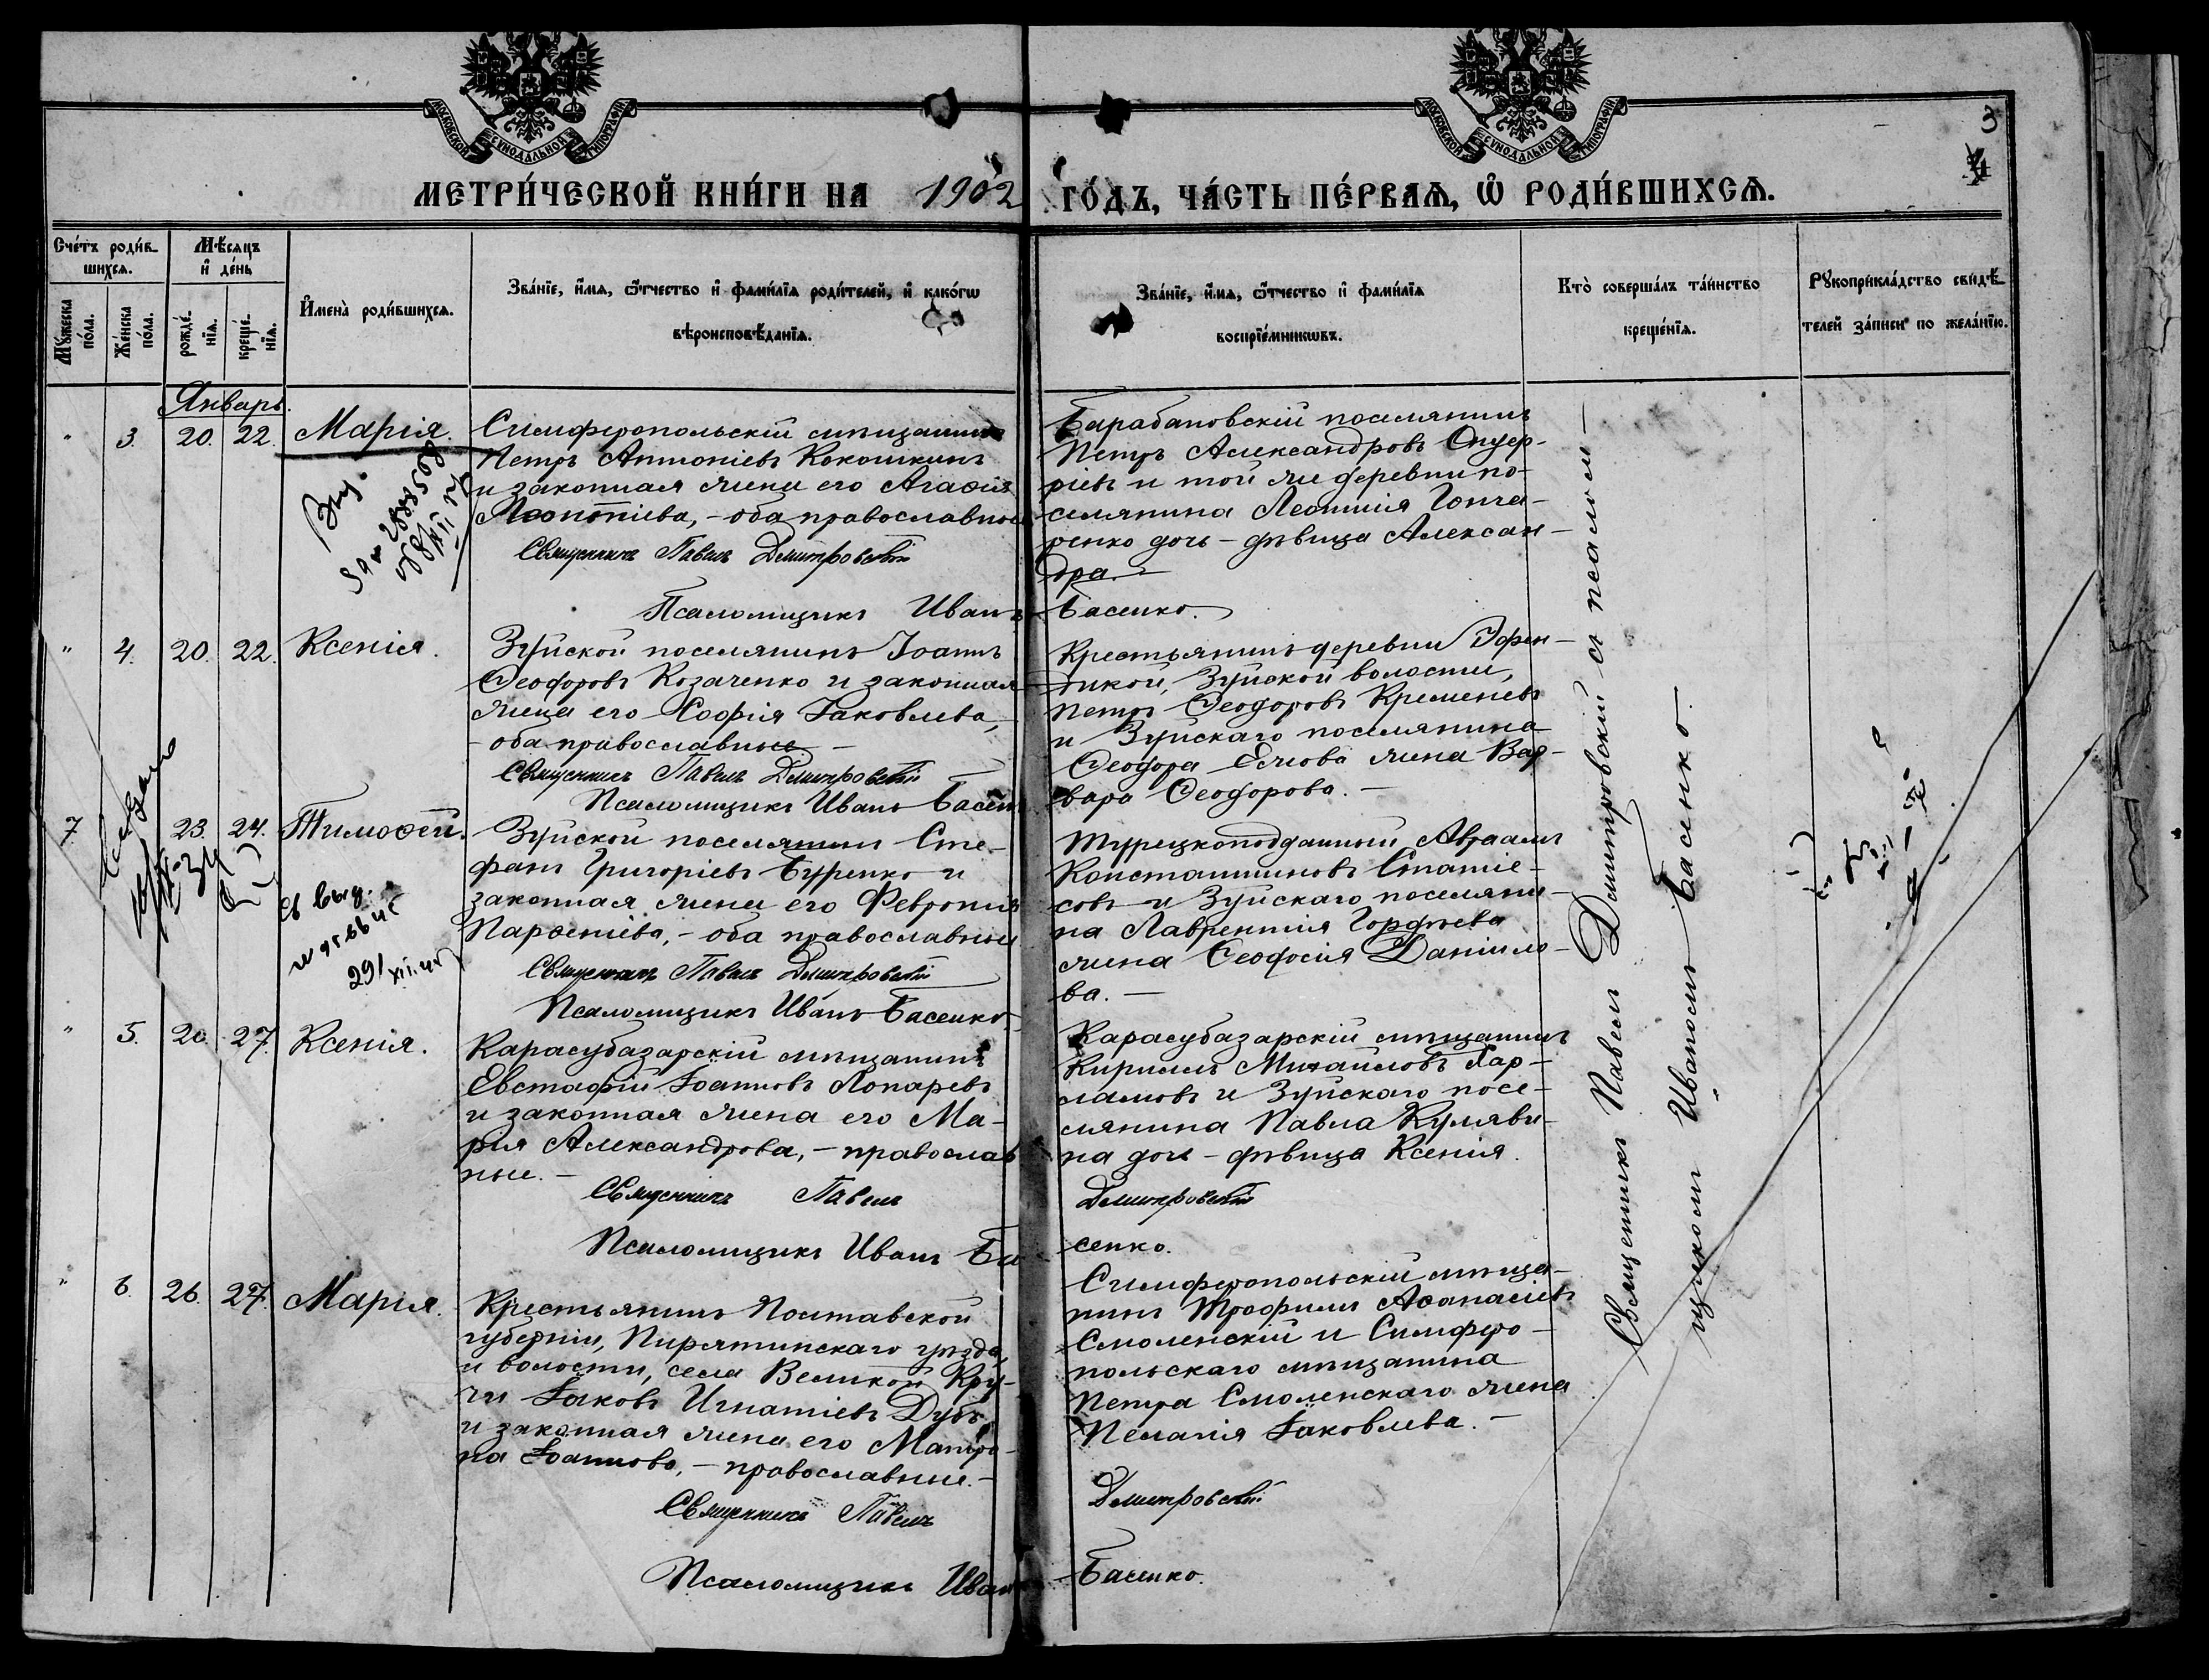 МОСКОВСКОЙ СУНОДАЛЬНОЙ ТИПОГРАФІИ
МОСКОВСКОЙ СУНОДАЛЬНОЙ ТИПОГРАФІИ
3
4
МЕТРИ́ЧЕСКОЙ КНИ́ГИ НА 1902 ГО́ДЪ, ЧА́СТЬ ПЕ́РВАѦ, Ѡ҆ РОДИ́ВШИХСѦ.
Сче́тъ роди́в-
шихсѧ.
Мꙋ́жеска
по́ла.
Же́нска
по́ла.
Мѣ́сѧцъ
и҆ де́нь
рожде́-
нїѧ.
креще́-
нїѧ.
И҆мена̀ роди́вшихсѧ.
Зва́нїе, и҆́мѧ, ѻ҆́тчество и҆ фами́лїѧ роди́телей, и҆ како́гѡ
вѣроисповѣ́данїѧ.
Зва́нїе, и҆́мѧ, ѻ҆́тчество и҆ фами́лїѧ
воспрїе́мникѡвъ.
Кто̀ соверша́лъ та́инство
креще́нїѧ.
Рꙋкоприкла́дство свидѣ́-
телей за́писи по жела́нїю.
Январь.
" 3. 20. 22. Марія.
Симферопольскій мѣщанинъ
Петръ Антоніевъ Кокошкинъ
и законная жена его Агаѳія
Леонтіева, - оба православные
Священникъ Павелъ Димитровскій
Псаломщикъ Иванъ Басенко.
Барабановскій поселянинъ
Петръ Александровъ Онуф-
ріевъ и той же деревни по-
селянина Леонтія Гонча-
ренко дочь - дѣвица Алексан-
дра. -
" 4. 20. 22. Ксенія.
Зуйской поселянинъ Іоаннъ
Ѳеодоровъ Козаченко и законная
жена его Софія Іаковлева,
- оба православные. -
Священникъ Павелъ Димитровскій
Псаломщикъ Иванъ Басенко
Крестьянинъ деревни Эфен-
дикой, Зуйской волости,
Петръ Ѳеодоровъ Кременевъ
и Зуйскаго поселянина
Ѳеодора жена Вар-
вара Ѳеодорова. -
7. 23. 24. Тимоѳей.
Зуйской поселянинъ Сте-
фанъ Григоріевъ Буренко и
законная жена его Февронія
Парѳеніева, - оба православные
Священникъ Павелъ Димитровскій
Псаломщикъ Иванъ Басенко.
Турецкоподданный Авраамъ
Константиновъ Спатіе-
совъ и Зуйскаго поселяни-
на Лаврентія Гордѣева
жена Ѳеодосія Даніило-
ва. -
" 5. 20. 27. Ксенія.
Карасубазарскій мѣщанинъ
Евстафій Іоанновъ Лопаревъ
и законная жена его Ма-
рія Александрова, - православ
ные. -
Священникъ Павелъ Димитровскій
Псаломщикъ Иванъ Басенко.
Карасубазарскій мѣщанинъ
Кириллъ Михаиловъ Хар-
ламовъ и Зуйскаго посе-
лянина Павла Куляви-
на дочь - дѣвица Ксенія.
" 6. 26. 27. Марія.
Крестьянинъ Полтавской
губерніи, Пирятинскаго уѣзда
и волости, села Великой Кру-
чи Іаковъ Игнатіевъ Дубъ
и законная жена его Матро-
на Іоаннова, - православные. -
Священникъ Павелъ Димитровскій
Псаломщикъ Иванъ Басенко.
Симферопольскій мѣща-
нинъ Трофимъ Аѳанасіевъ
Смоленскій и Симферо-
польскаго мѣщанина
Петра Смоленскаго жена
Пелагія Іаковлева. -
Священникъ Павелъ Димитровскій съ псалом -
щикомъ Иваномъ Басенко.